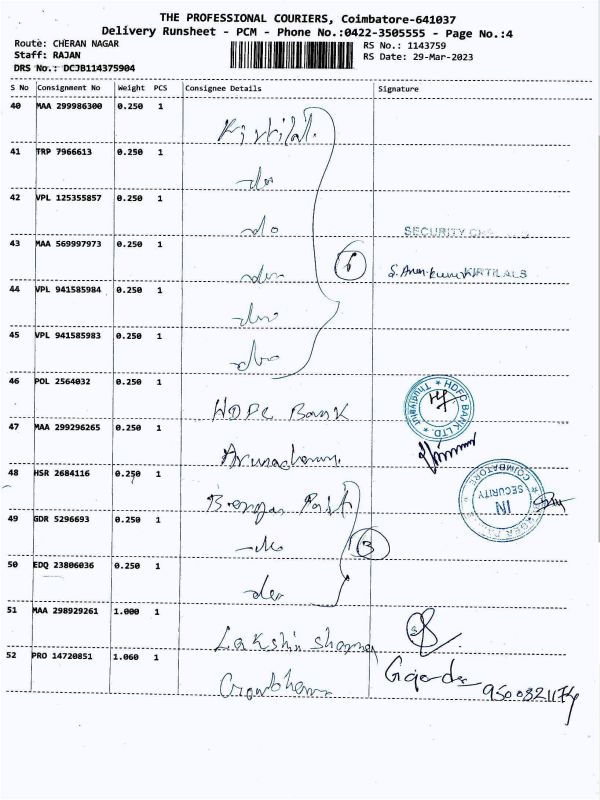 THE PROFESSIONAL COURIERS, Coimbatore-641037
Delivery Runsheet - PCM - Phone No.:0422-3505555 - Page No.:4
Route: CHERAN NAGAR
RS No.: 1143759
Staff: RAJAN
RS Date: 29-Mar-2023
DRS No.: DCJB114375904
S No Consignment No Weight PCS Consignee Details Signature
40 MAA 299986300 0.250 1
41 TRP 7966613 0.250 1
do
42 VPL 125355857 0.250 1
do
SECURITY
43 MAA 569997973 0.250 1
do
6
KIRTILALS
44 VPL 941585984 0.250 1
do
45 VPL 941585983 0.250 1
do
46 POL 2564032 0.250 1
HDFC Bank
HDFC BANK LTD.
47 MAA 299296265 0.250 1
Arunachalam
48 HSR 2684116 0.250 1
COIMBATORE
SECURITY
IN
49 GDR 5296693 0.250 1
do
3
50 EDQ 23806036 0.250 1
do
51 MAA 298929261 1.000 1
Lakshi sharma
52 PRO 14720851 1.060 1